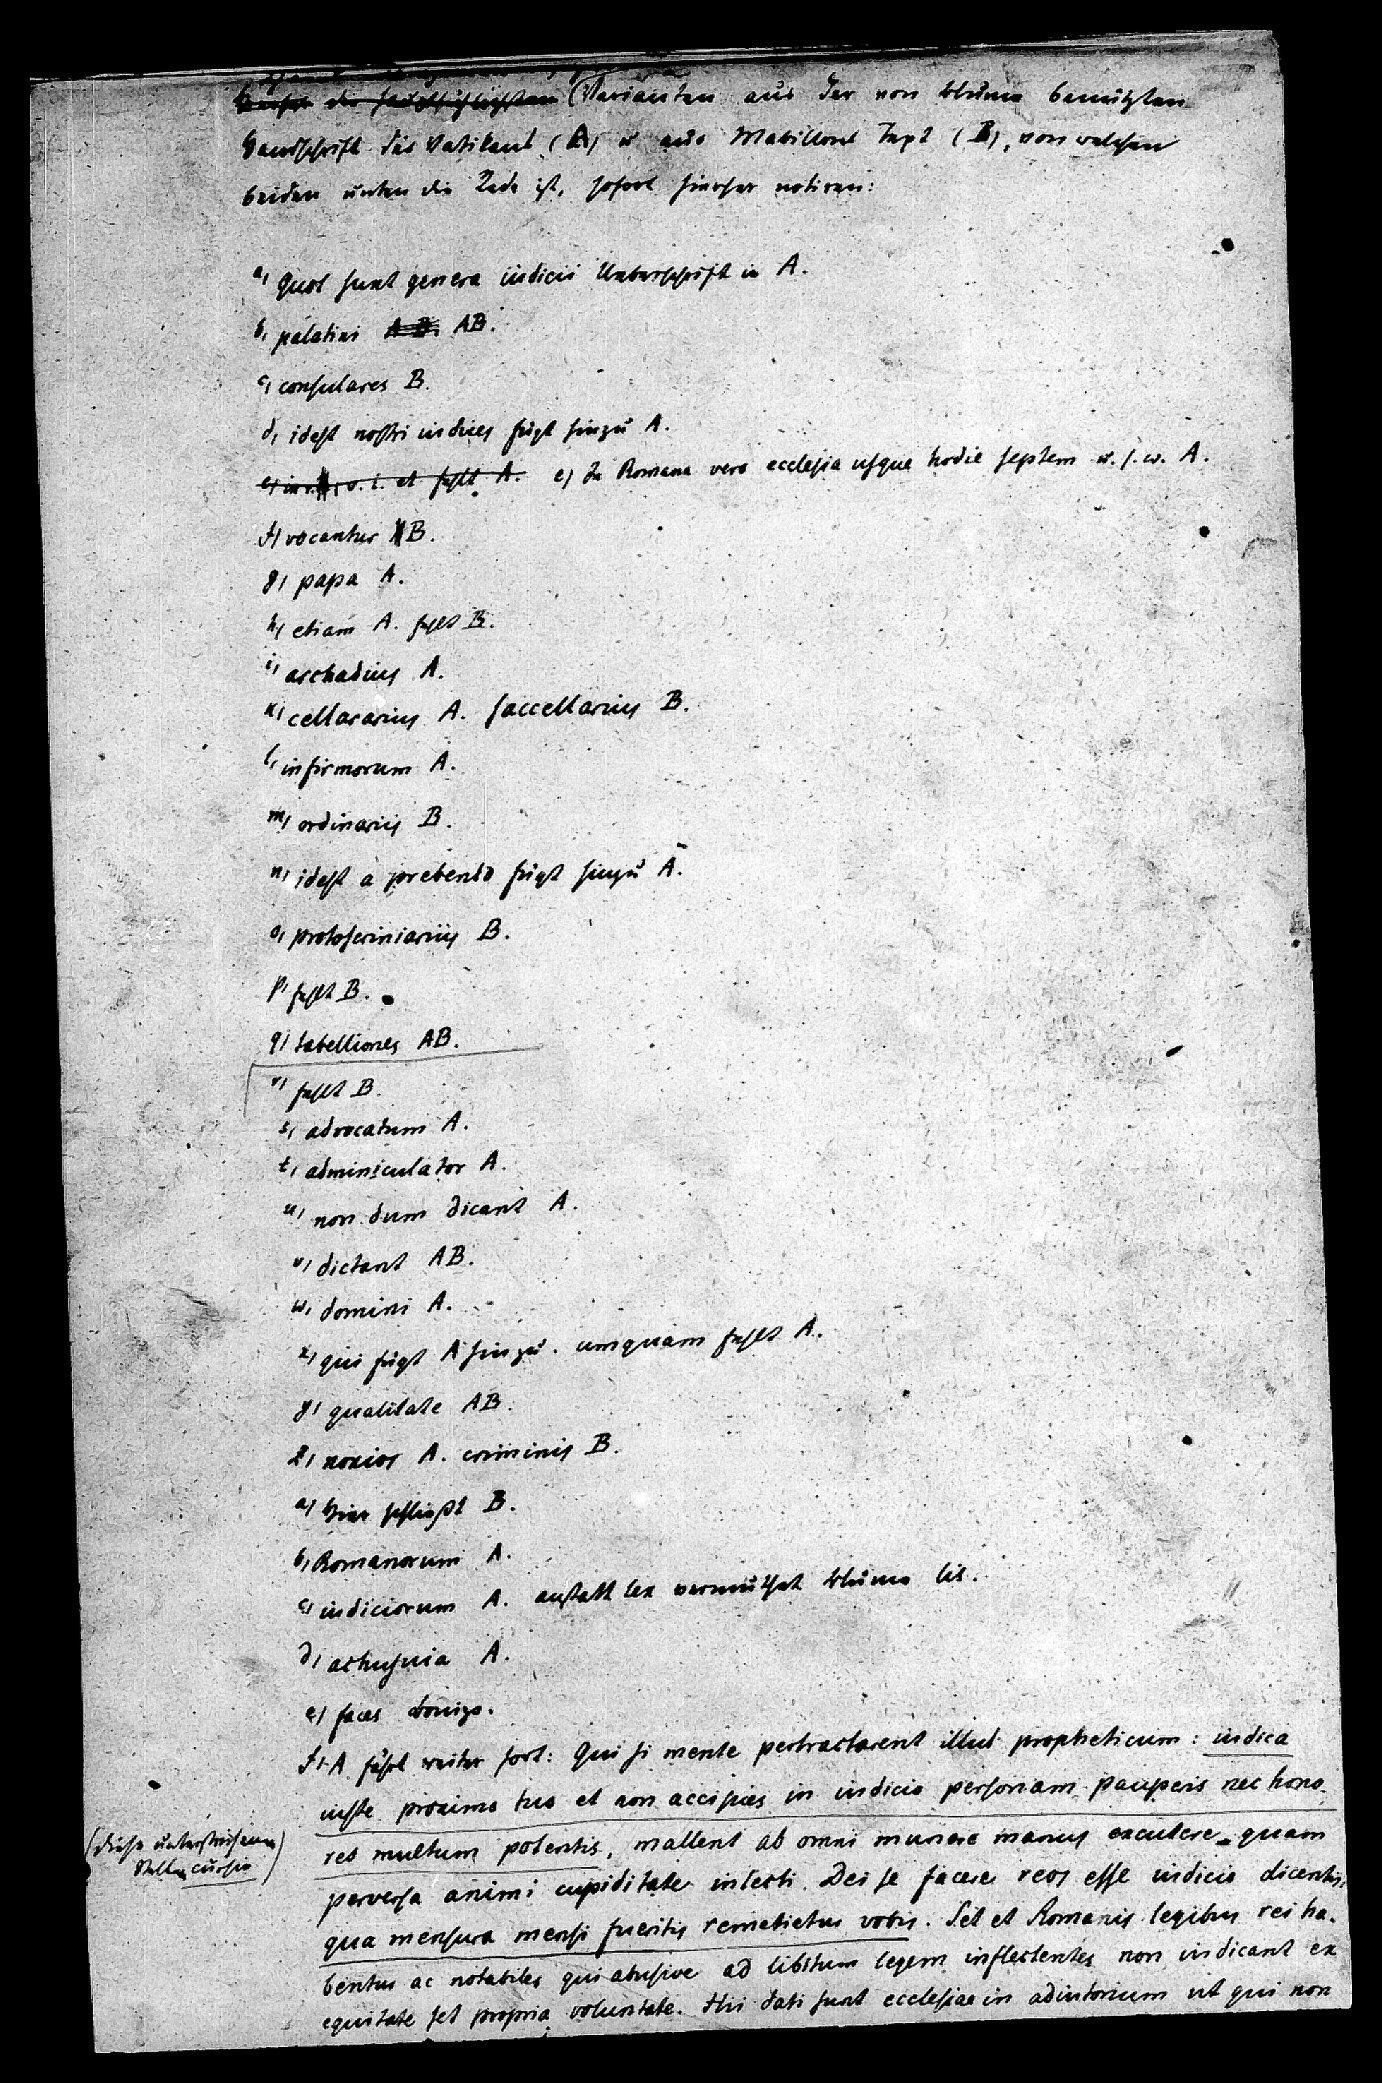 Varianten aus der von Blume benützten
Handschrift des Vatikans (A) u aus Mabillons Text (B), von welchen
beiden unten die Rede ist, sofort hierher notiren:
a) Quot sunt genera iudicii Ueberschrift in A.
b) palatini A B. AB.
c) consulares B.
d) idest nostri iudices fügt hinzu A.
fehlt A. e) In Romana vero ecclesia usque hodie septem u. s. w. A.
f) vocantur B.
g) papa A.
h) etiam A. fehlt B.
i) archadius A.
k) cellararius A. saccellarius B.
l) infirmorum A.
m) ordinariis B.
n) idest a prebendo fügt hinzu A.
o) protoscriniariis B.
p) fehlt B.
q) tabelliones AB.
r) fehlt B.
s) advocatum A.
t) adminiculator A.
u) non dum dicant A.
v) dictant AB.
w) domini A.
x) qui fügt A hinzu. umquam fehlt A.
y) qualitate AB.
z) noxios A. criminis B.
a) Hier schließt B.
b) Romanorum A.
c) iudiciorum A. anstatt lex vermuthet Blume lis.
d) A.
e) faces Bonizo.
f) A fährt weiter fort: Qui si mente pertractarent illud propheticum: iudica
iuste proximo tuo et non accipies in iudicio personam pauperis nec hono
res multum potentis, mallent ab omni munere manus excutere quam
(diese unterstrichenen
Stellen cursiv)
perversa animi cupiditate infecti Dei se facere reos esse iudicio dicentis,
qua mensura mensi fueritis remetietur vobis. Set et Romanis legibus rei ha-
bentur ac notabiles qui abusive ad libitum legem inflectentes non iudicant ex
equitate set propria voluntate. Hii dati sunt ecclesiae in adiutorium ut qui non